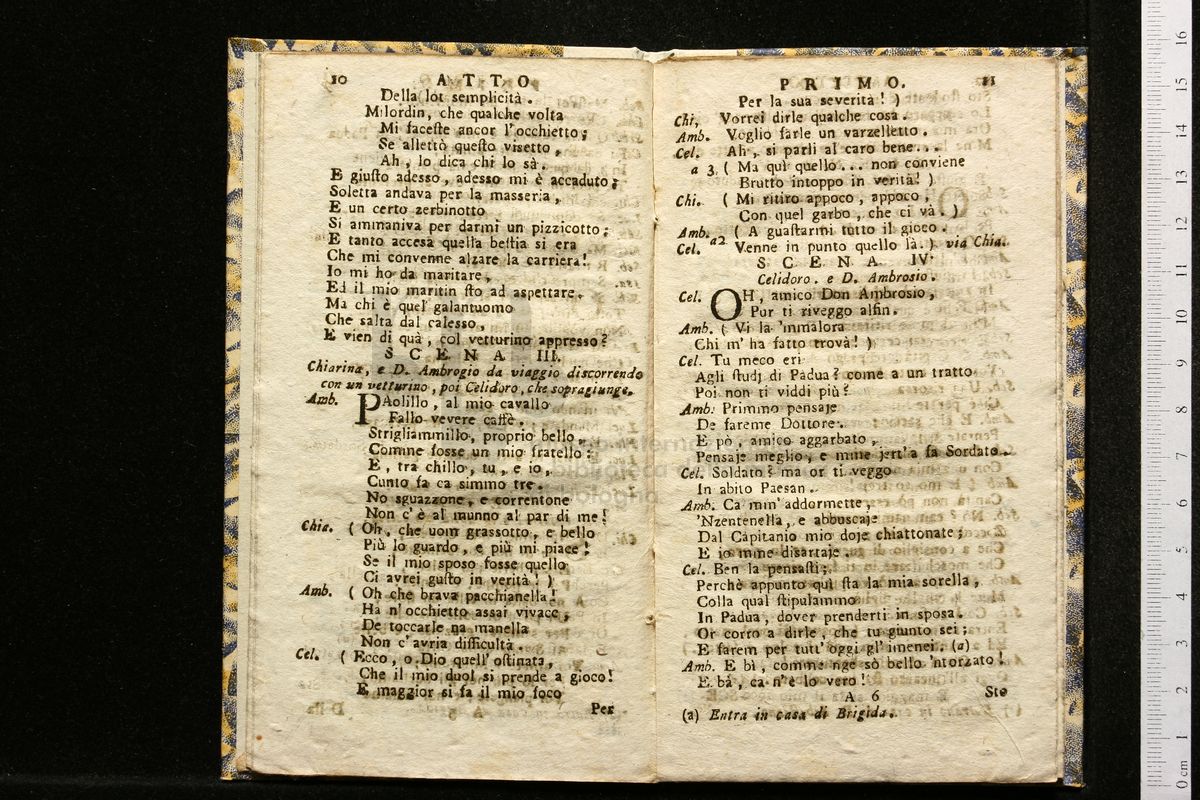 10 ATTO
Della lor semplicità.
Milordin, che qualche volta
Mi faceste ancor l'occhietto;
Se allettò questo visetto,
Ah, lo dica chi lo sà.
E giusto adesso, adesso mi è accaduto;
Soletta andava per la masseria,
E un certo zerbinotto
Si ammaniva per darmi un pizzicotto;
E tanto accesa quella bestia si era
Che mi convenne alzare la carriera!
Io mi ho da maritare,
Ed il mio maritin sto ad aspettare.
Ma chi è quel galantuomo
Che salta dal calesso,
E vien di quà, col vetturino appresso?
SCENA III.
Chiarina, e D. Ambrogio da viaggio discorrendo
con un vetturino, poi Celidoro, che sopragiunge.
Amb. PAolillo, al mio cavallo
Fallo vevere caffè,
Strigliammillo, proprio bello,
Comme fosse un mio fratello:
E, tra chillo, tu, e io,
Cunto fa ca simmo tre.
No sguazzone, e correntone
Non c'è al munno al par di me!
Chia. (Oh, che uom grassotto, e bello
Più lo guardo, e più mi piace!
Se il mio sposo fosse quello
Ci avrei gusto in verità!)
Amb. (Oh che brava pacchianella!
Ha n'occhietto assai vivace,
De toccarle na manella
Non c'avria difficultà.
Cel. (Ecco, o Dio quell'ostinata,
Che il mio duol si prende a gioco!
E maggior si fa il mio foco
Per
PRIMO. 11
Per la sua severità!)
Chi, Vorrei dirle qualche cosa.
Amb. Voglio farle un varzelletto.
Cel. Ah, si parli al caro bene...
a 3. (Ma quì quello... non conviene
Brutto intoppo in verità!)
Chi. (Mi ritiro appoco, appoco,
Con quel garbo, che ci và.)
Amb. (A guastarmi tutto il gioco.
Cel. a2 Venne in punto quello là.) via Chia.
SCENA IV.
Celidoro. e D. Ambrosio.
Cel. OH, amico Don Ambrosio,
Pur ti riveggo alfin.
Amb. (Vi la 'mmalora
Chi m'ha fatto trovà!)
Cel. Tu meco eri
Agli studj di Padua? come a un tratto
Poi non ti viddi più?
Amb: Primmo pensaje
De fareme Dottore.
E pò, amico aggarbato,
Pensaje meglio, e mme jert'a fa Sordato.
Cel. Soldato? ma or ti veggo
In abito Paesan.
Amb. Ca mm' addormette,
'Nzentenella, e abbuscaje
Dal Capitanio mio doje chiattonate;
E io mme disartaje.
Cel. Ben la pensasti;
Perchè appunto quì sta la mia sorella,
Colla qual stipulammo
In Padua, dover prenderti in sposa.
Or corro a dirle, che tu giunto sei;
E farem per tutt' oggi gl' imenei. (a)
Amb. E bì, comme nge sò bello 'ntorzato!
E bà, ca n'è lo vero!
A 6 Sto
(a) Entra in casa di Brigida.